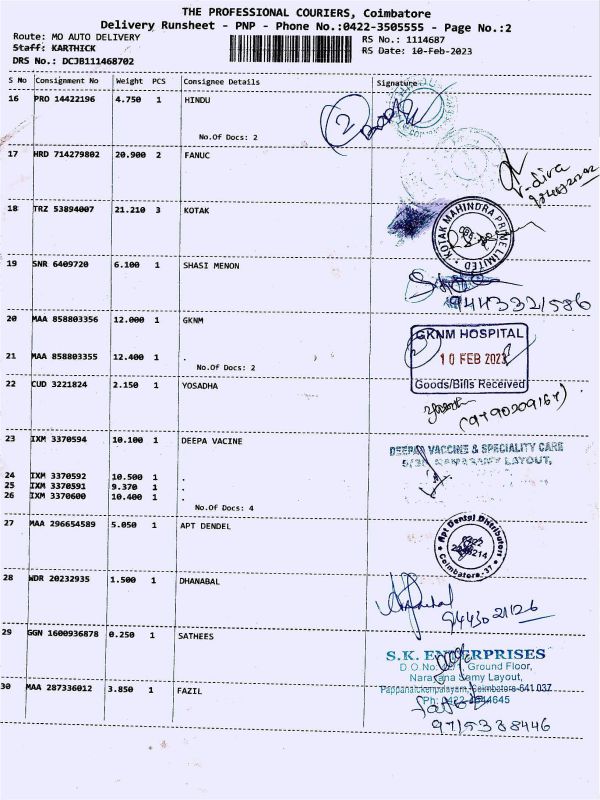 THE PROFESSIONAL COURIERS, Coimbatore
Delivery Runsheet - PNP - Phone No.:0422-3505555 - Page No.:2
Route: MO AUTO DELIVERY
RS No.: 1114687
Staff: KARTHICK
RS Date: 10-Feb-2023
DRS No.: DCJB111468702
S No Consignment No Weight PCS Consignee Details Signature
16 PRO 14422196 4.750 1 HINDU
2
No.Of Docs: 2
17 HRD 714279802 20.900 2 FANUC
18 TRZ 53894007 21.210 3 KOTAK
KOTAK MAHINDRA PRIME LIMITED
19 SNR 6409720 6.100 1 SHASI MENON
94443321586
20 MAA 858803356 12.000 1 GKNM
GKNM HOSPITAL
10 FEB 2023
Goods/Bills Received
21 MAA 858803355 12.400 1 .
No.Of Docs: 2
22 CUD 3221824 2.150 1 YOSADHA
23 IXM 3370594 10.100 1 DEEPA VACINE
DEEPAM VACCINE & SPECIALITY CARE
LAYOUT,
24 IXM 3370592 10.500 1 .
25 IXM 3370591 9.370 1 .
26 IXM 3370600 10.400 1 .
No.Of Docs: 4
27 MAA 296654589 5.050 1 APT DENDEL
Apt Dental Distributors
Coimbatore-37
28 WDR 20232935 1.500 1 DHANABAL
9443021126
29 GGN 1600936878 0.250 1 SATHEES
S.K. ENTERPRISES
Ground Floor,
Narayana Samy Layout,
Pappanaickenpalayam, Coimbatore-641 037
30 MAA 287336012 3.850 1 FAZIL
9715338446